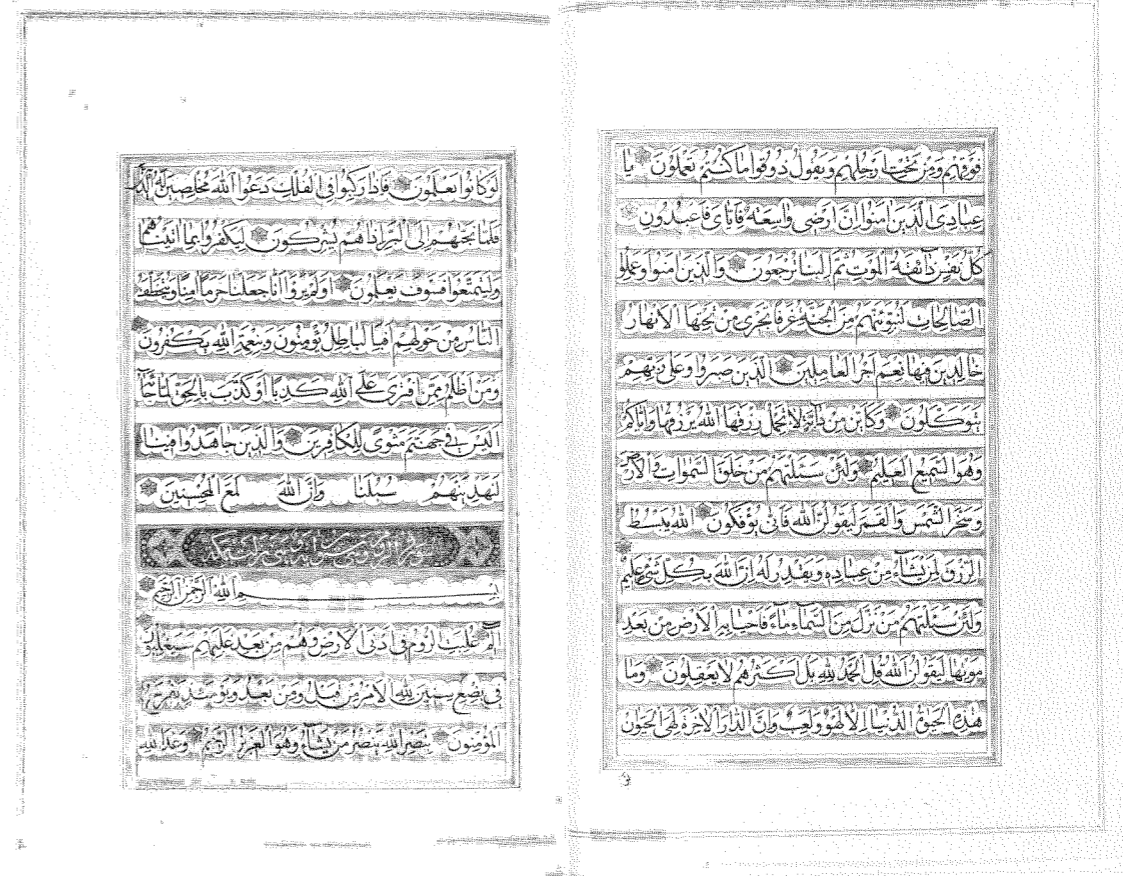 فوقهم ومن تحت ارجلهم ويقول ذوقوا ما كنتم تعملون يا
عبادي الذين امنوا ان ارضي واسعة فاياى فاعبدون
كل نفس ذائقة الموت ثم الينا ترجعون والذين امنوا وعملوا
الصالحات لنبوئنهم من الجنة غرفا تجري من تحتها الانهار
خالدين فيها نعم اجر العاملين الذين صبروا وعلى ربهم
يتوكلون وكاين من دابة لا تحمل رزقها الله يرزقها واياكم
وهو السميع العليم ولئن سئلتهم من خلق السموات والارض
وسخر الشمس والقمر ليقولن الله فانى يؤفكون الله يبسط
الرزق لمن يشاء من عباده ويقدر له ان الله بكل شئ عليم
ولئن سئلتهم من نزل من السماء ماء فاحيا به الارض من بعد
موتها ليقولن الله قل الحمد لله بل اكثرهم لا يعقلون وما
هذه الحيوة الدنيا الا لهو ولعب وان الدار الاخرة لهى الحيوان
لو كانوا يعلمون فاذا ركبوا في الفلك دعوا الله مخلصين له الدين
فلما نجيهم الى البر اذا هم يشركون ليكفروا بما اتيناهم
وليتمتعوا فسوف يعلمون اولم يروا انا جعلنا حرما امنا ويتخطف
الناس من حولهم افبالباطل يؤمنون وبنعمة الله يكفرون
ومن اظلم ممن افترى على الله كذبا او كذب بالحق لما جاءه
اليس في جهنم مثوى للكافرين والذين جاهدوا فينا
لنهدينهم سبلنا وان الله لمع المحسنين
بسم الله الرحمن الرحيم
الم غلبت الروم في ادنى الارض وهم من بعد غلبهم سيغلبون
في بضع سنين لله الامر من قبل ومن بعد ويومئذ يفرح
المؤمنون بنصر الله ينصر من يشاء وهو العزيز الرحيم وعد الله